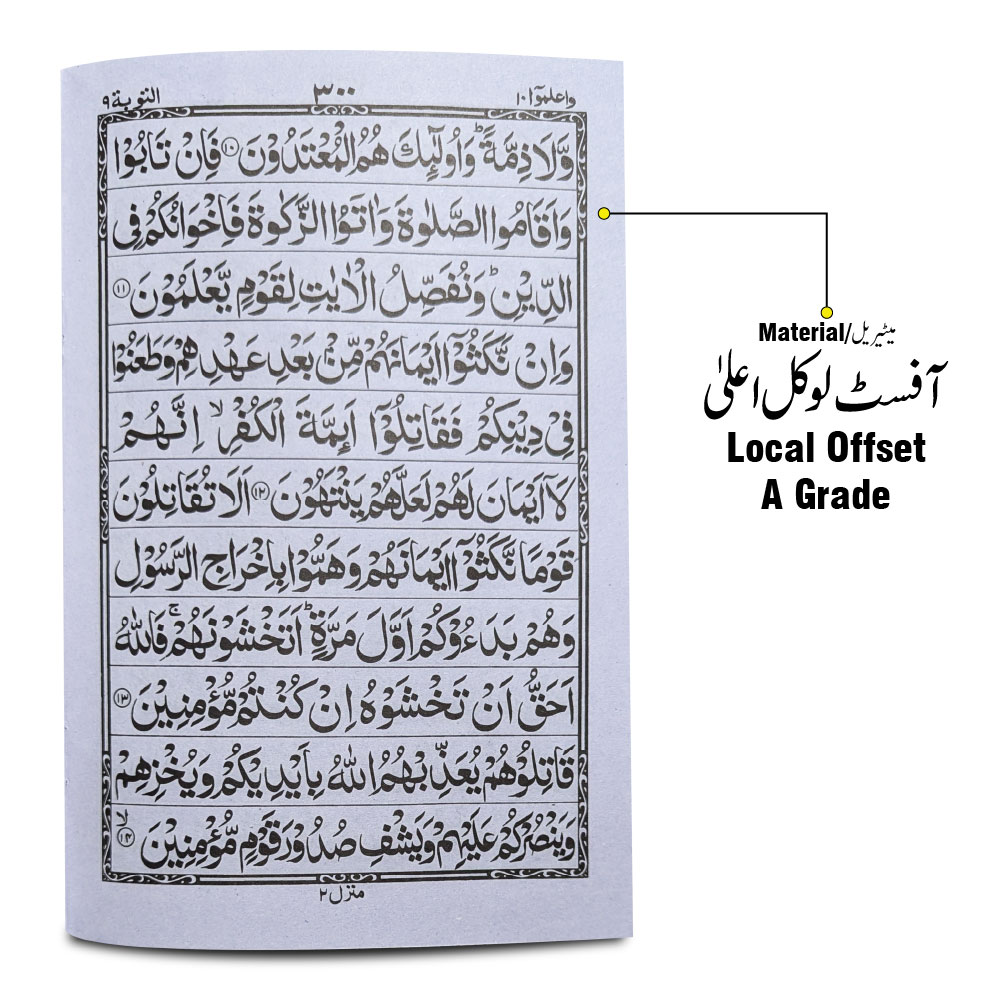 واعلموٓا ١٠
٣٠٠
التوبة ٩
وَّلَا ذِمَّةً ؕ وَاُولٰٓئِكَ هُمُ الْمُعْتَدُوْنَ ﴿۱۰﴾ فَاِنْ تَابُوْا
وَاَقَامُوا الصَّلٰوةَ وَاٰتَوُا الزَّكٰوةَ فَاِخْوَانُكُمْ فِی
الدِّیْنِ ؕ وَنُفَصِّلُ الْاٰیٰتِ لِقَوْمٍ یَّعْلَمُوْنَ ﴿۱۱﴾
وَاِنْ نَّكَثُوْۤا اَیْمَانَهُمْ مِّنْۢ بَعْدِ عَهْدِهِمْ وَطَعَنُوْا
فِیْ دِیْنِكُمْ فَقَاتِلُوْۤا اَىِٕمَّةَ الْكُفْرِ ۙ اِنَّهُمْ
لَاۤ اَیْمَانَ لَهُمْ لَعَلَّهُمْ یَنْتَهُوْنَ ﴿۱۲﴾ اَلَا تُقَاتِلُوْنَ
قَوْمًا نَّكَثُوْۤا اَیْمَانَهُمْ وَهَمُّوْا بِاِخْرَاجِ الرَّسُوْلِ
وَهُمْ بَدَءُوْكُمْ اَوَّلَ مَرَّةٍ ؕ اَتَخْشَوْنَهُمْ ۚ فَاللّٰهُ
اَحَقُّ اَنْ تَخْشَوْهُ اِنْ كُنْتُمْ مُّؤْمِنِیْنَ ﴿۱۳﴾
قَاتِلُوْهُمْ یُعَذِّبْهُمُ اللّٰهُ بِاَیْدِیْكُمْ وَیُخْزِهِمْ
وَیَنْصُرْكُمْ عَلَیْهِمْ وَیَشْفِ صُدُوْرَ قَوْمٍ مُّؤْمِنِیْنَ ﴿۱۴﴾ ۙ
منزل ٢
Material/میٹیریل
آفسٹ لوکل اعلیٰ
Local Offset
A Grade